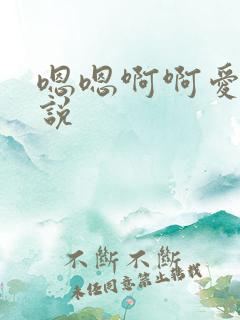 嗯嗯啊啊愛
說
不斷不斷
未经同意禁止转载